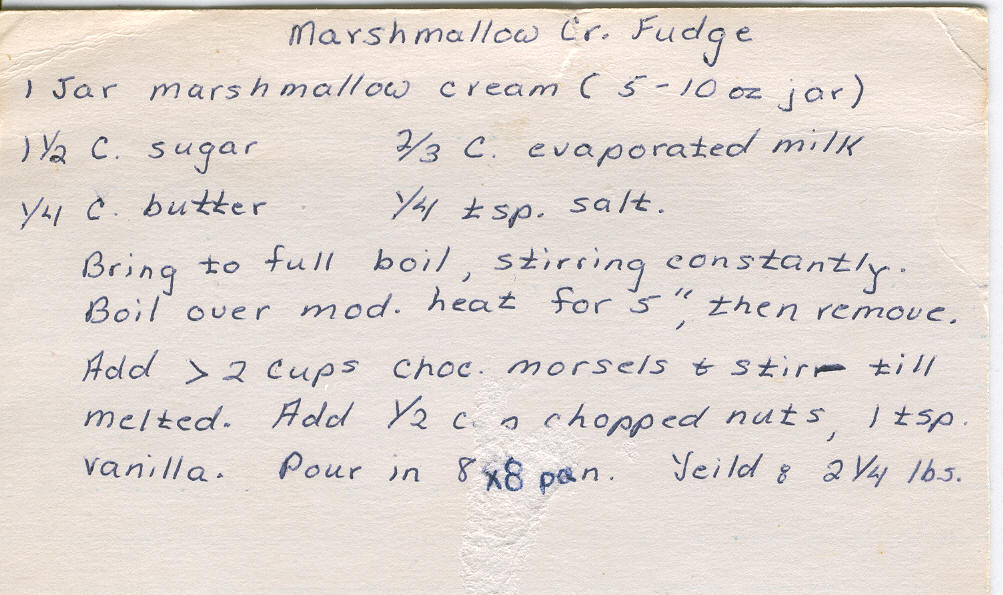 Marshmallow Cr. Fudge
1 Jar marshmallow cream ( 5-10 oz jar)
1 1/2 C. sugar 2/3 C. evaporated milk
1/4 C. butter 1/4 tsp. salt.
Bring to full boil, stirring constantly.
Boil over mod. heat for 5", then remove.
Add > 2 cups choc. morsels & stir till
melted. Add 1/2 c. chopped nuts, 1 tsp.
vanilla. Pour in 8x8 pan. Yeild 2 1/4 lbs.